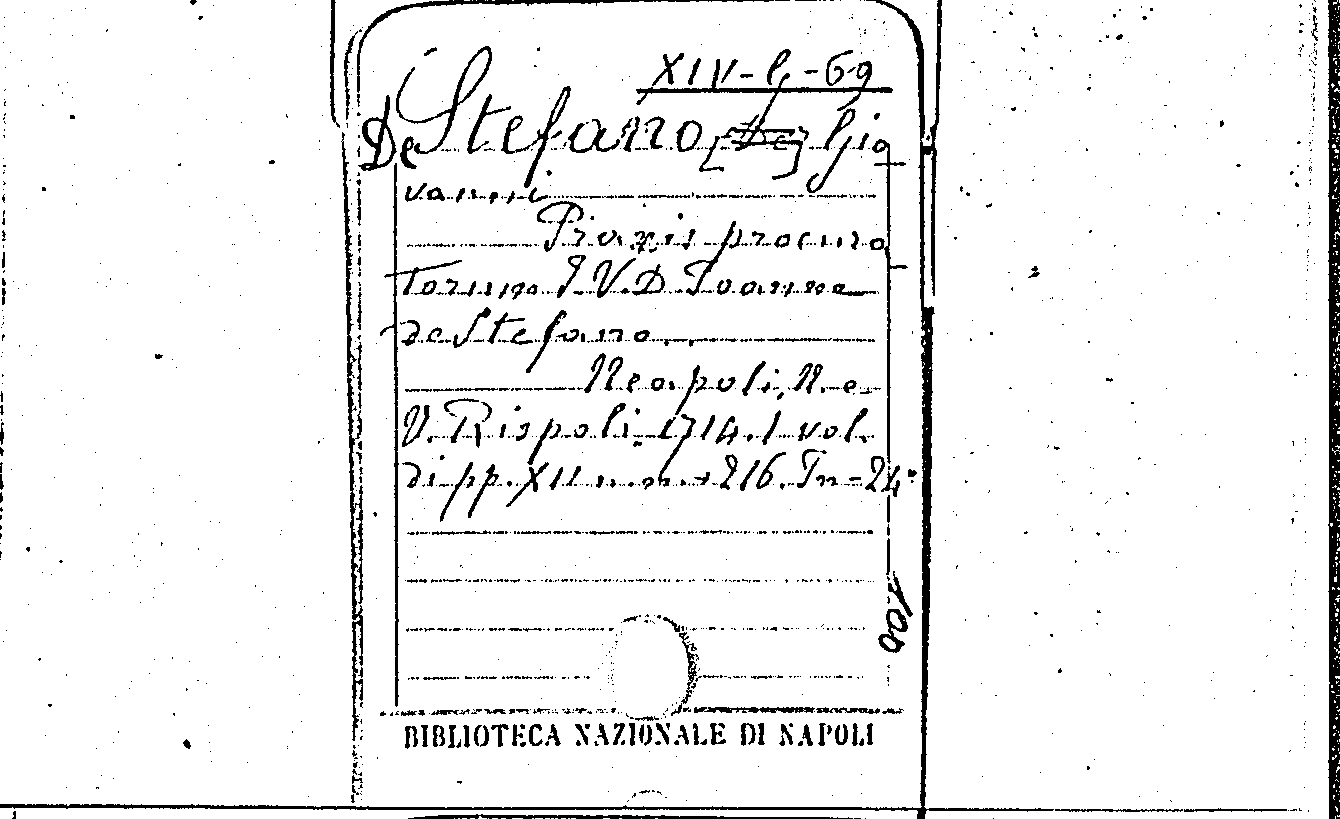 XIV-G-69
De Stefano [De] Gio
vanni
Praxis procura
torum I.V.D. Ioanne
de Stefano..
Neapoli, N. e
V. Rispoli. 1714. 1 vol.
di pp. XII n.n. + 216. In-24°
100
BIBLIOTECA NAZIONALE DI NAPOLI